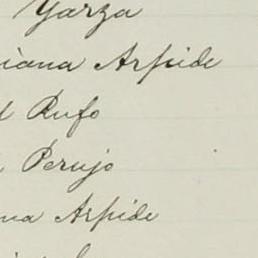 Yarza
iana Arpide
l Rufo
Perujo
na Arpide